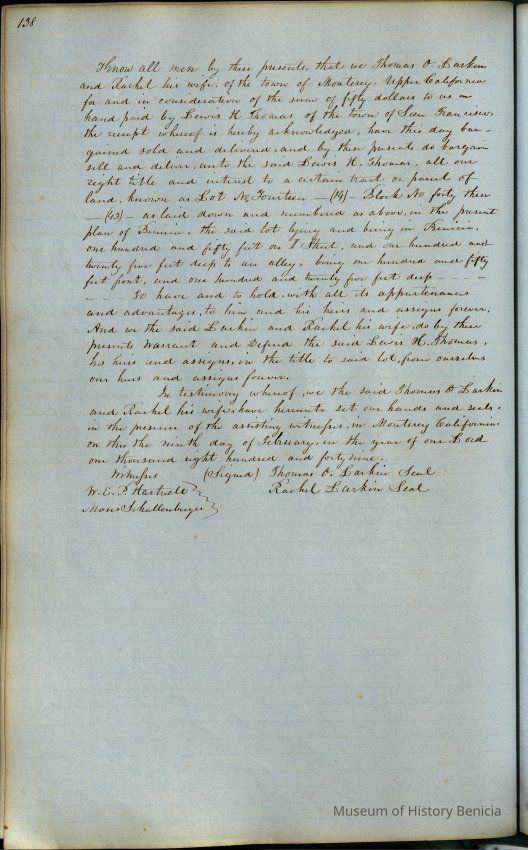 138
Know all men by these presents, that we Thomas O Larkin
and Rachel his wife, of the town of Monterey. Upper California
for and in consideration of the sum of fifty dollars to us in
hand paid by Lewis H. Thomas, of the town of San Francisco,
the receipt whereof is hereby acknowledged, have this day bar-
gained sold and delivered, and by these presents do bargain
sell and deliver, unto the said Lewis H. Thomas, all our
right title and interest to a certain tract or parcel of
land, known as Lot No Fourteen — (14) — Block No forty three
— (43) — as laid down and numbered as above, in the present
plan of Benicia. the said lot lying and being in Benicia,
one hundred and fifty feet on I Street, and one hundred and
twenty five feet deep to an alley; being one hundred and fifty
feet front, and one hundred and twenty five feet deep - - - -
- - - - To have and to hold, with all its appurtenances
and advantages, to him and his heirs and assigns forever.
And we the said Larkin and Rachel his wife, do by these
presents Warrant and Defend the said Lewis H. Thomas,
his heirs and assigns, in the title to said lot, from ourselves
our heirs and assigns forever.
In testimony whereof, we the said Thomas O Larkin
and Rachel his wife, have hereunto set our hands and seals,
in the presence of the assisting witnesses, in Monterey California
on this the ninth day of February, in the year of our Lord
one thousand eight hundred and forty nine.
Witnesses (Signed) Thomas O. Larkin Seal
W. E. P. Hartnell Rachel Larkin Seal
Moses Schallenberger
Museum of History Benicia